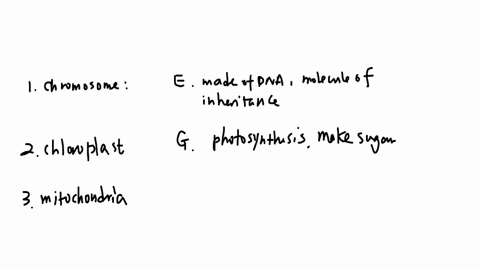 1. chromosome: E. made of DNA, molecule of
inheritance
2. chloroplast G. photosynthesis, make sugar
3. mitochondria